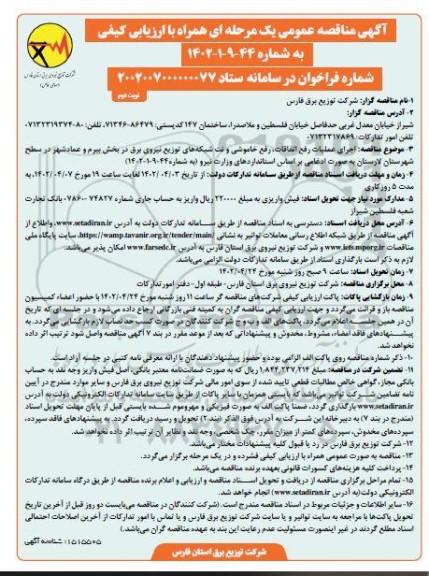 آگهی مناقصه عمومی یک مرحله ای همراه با ارزیابی کیفی
به شماره ۴۴-۹-۱-۱۴۰۲
شماره فراخوان در سامانه ستاد ۲۰۰۲۰۰۷۰۰۰۰۰۰۷۷
نوبت دوم
۱-نام مناقصه گزار: شرکت توزیع برق فارس
۲- آدرس مناقصه گزار:
شیراز خیابان معدل غربی حدفاصل خیابان فلسطین و ملاصدرا، ساختمان ۱۴۷ کدپستی: ۸۶۴۷۹-۷۱۳۴۶، تلفن: ۸۰-۰۷۱۳۲۳۱۹۳۷۴
تلفن امور تدارکات: ۰۷۱۳۲۳۱۷۸۶۹
۳- موضوع مناقصه: اجرای عملیات رفع اتفاقات، رفع خاموشی و نت شبکه‌های توزیع نیروی برق در بخش بیرم و عمادشهر در سطح
شهرستان لارستان به صورت ادغامی بر اساس استانداردهای وزارت نیرو (به شماره ۴۴-۹-۱-۱۴۰۲)
۴- زمان و مهلت دریافت اسناد مناقصه از طریق سامانه تدارکات دولت: از تاریخ ۱۴۰۲/۰۴/۰۳ لغایت ساعت ۱۹ مورخ ۱۴۰۲/۰۴/۰۷، به
مدت ۵ روز کاری
۵- مدارک مورد نیاز جهت تحویل اسناد: فیش واریزی به مبلغ ۲۲۰۰۰۰ ریال واریز به حساب جاری شماره ۷۴۸۲۷-۰۷۸۶۰۰ بانک تجارت
شعبه فلسطین شیراز
۶- آدرس محل دریافت اسناد: دسترسی به اسناد مناقصه از طریق سامانه تدارکات دولت به آدرس www.setadiran.ir، واطلاع از
آگهی مناقصه از طریق شبکه اطلاع رسانی معاملات توانیر به نشانی https://wamp.tavanir.org.ir/tender/main، سایت پایگاه ملی
مناقصات www.iets.mporg.ir و شرکت توزیع نیروی برق استان فارس به آدرس www.farsedc.ir امکان پذیر می‌باشد.
لازم به ذکر است بارگذاری اسناد از طریق سامانه تدارکات دولت الزامی می‌باشد.
۷- زمان تحویل اسناد: ساعت ۹ صبح روز شنبه مورخ ۱۴۰۲/۰۴/۲۴
۸- محل برگزاری مناقصه: شرکت توزیع نیروی برق استان فارس- طبقه اول- دفتر امور تدارکات
۹- زمان بازگشایی پاکات: پاکت ارزیابی کیفی شرکت‌های مناقصه گر ساعت ۱۱ روز شنبه مورخ ۱۴۰۲/۰۴/۲۴ با حضور اعضاء کمیسیون
مناقصه باز و قرائت می‌گردد و جهت ارزیابی کیفی مناقصه گران به کمیته فنی بازرگانی ارجاع داده می‌شود و در جلسه ای که تاریخ
آن در همین جلسه اعلام می‌گردد، پاکت‌های الف و ب و ج شرکت کنندگان در صورت کسب حد نصاب لازم بازگشایی می‌گردد. به
پیشنهادهای فاقد امضاء، مشروط، مخدوش و پیشنهاداتی که بعد از موعد مقرر در بند ۷ آگهی مناقصه واصل شود ترتیب اثر داده
نخواهد شد.
۱۰- ذکر شماره مناقصه روی پاکت الف الزامی بوده و حضور پیشنهاد دهندگان یا ارائه معرفی نامه کتبی در جلسه آزاد است.
۱۱- تضمین شرکت در مناقصه: مبلغ ۱,۸۴۴,۲۳۷,۲۱۴ ریال که به صورت ضمانت‌نامه معتبر بانکی، اصل فیش واریز وجه نقد به حساب
بانکی مجاز، گواهی خالص مطالبات قطعی تایید شده از سوی امور مالی شرکت توزیع نیروی برق فارس و سایر موارد مندرج در آیین
نامه تضامین شرکت توانیر می‌باشد که بایستی همزمان با سایر پاکات از طریق سایت سامانه تدارکات الکترونیکی دولت به آدرس
www.setadiran.ir بارگذاری گردد، ضمنا پاکت الف به صورت فیزیکی و مهروموم شده بایستی قبل از پایان مهلت تحویل اسناد
(مندرج در بند ۷) به دبیرخانه این شرکت به آدرس فوق الذکر (بند ۲) تحویل و رسید دریافت گردد. به پیشنهادهای فاقد سپرده،
سپرده‌های مخدوش، سپرده‌های کمتر از میزان مقرر، چک شخصی، وجه نقد و نظایر آن ترتیب اثر داده نخواهد شد.
۱۲- شرکت توزیع برق فارس در رد یا قبول کلیه پیشنهادات مختار می‌باشد.
۱۳- مناقصه به صورت عمومی همراه با ارزیابی کیفی فشرده و در یک مرحله برگزار می‌گردد.
۱۴- پرداخت کلیه هزینه‌های کسورات قانونی بعهده برنده مناقصه می‌باشد.
۱۵- تمام مراحل برگزاری مناقصه از دریافت و تحویل اسناد مناقصه و ارزیابی و اعلام برنده مناقصه از طریق درگاه سامانه تدارکات
الکترونیکی دولت(به آدرس www.setadiran.ir) انجام خواهد شد.
۱۶- سایر اطلاعات و جزئیات مربوط در اسناد مناقصه مندرج است. (شرکت کنندگان در مناقصه می‌بایست دو روز قبل از آخرین تاریخ
تحویل پاکت‌ها با مراجعه به سایت توانیر و یا سایت شرکت توزیع برق فارس و یا تماس با امور تدارکات از آخرین اصلاحات احتمالی
اسناد مطلع گردند در غیر اینصورت مسئولیت عدم رعایت این بند به عهده مناقصه گران می‌باشد.)
شناسه آگهی: ۱۵۱۵۵۰۵
شرکت توزیع برق استان فارس